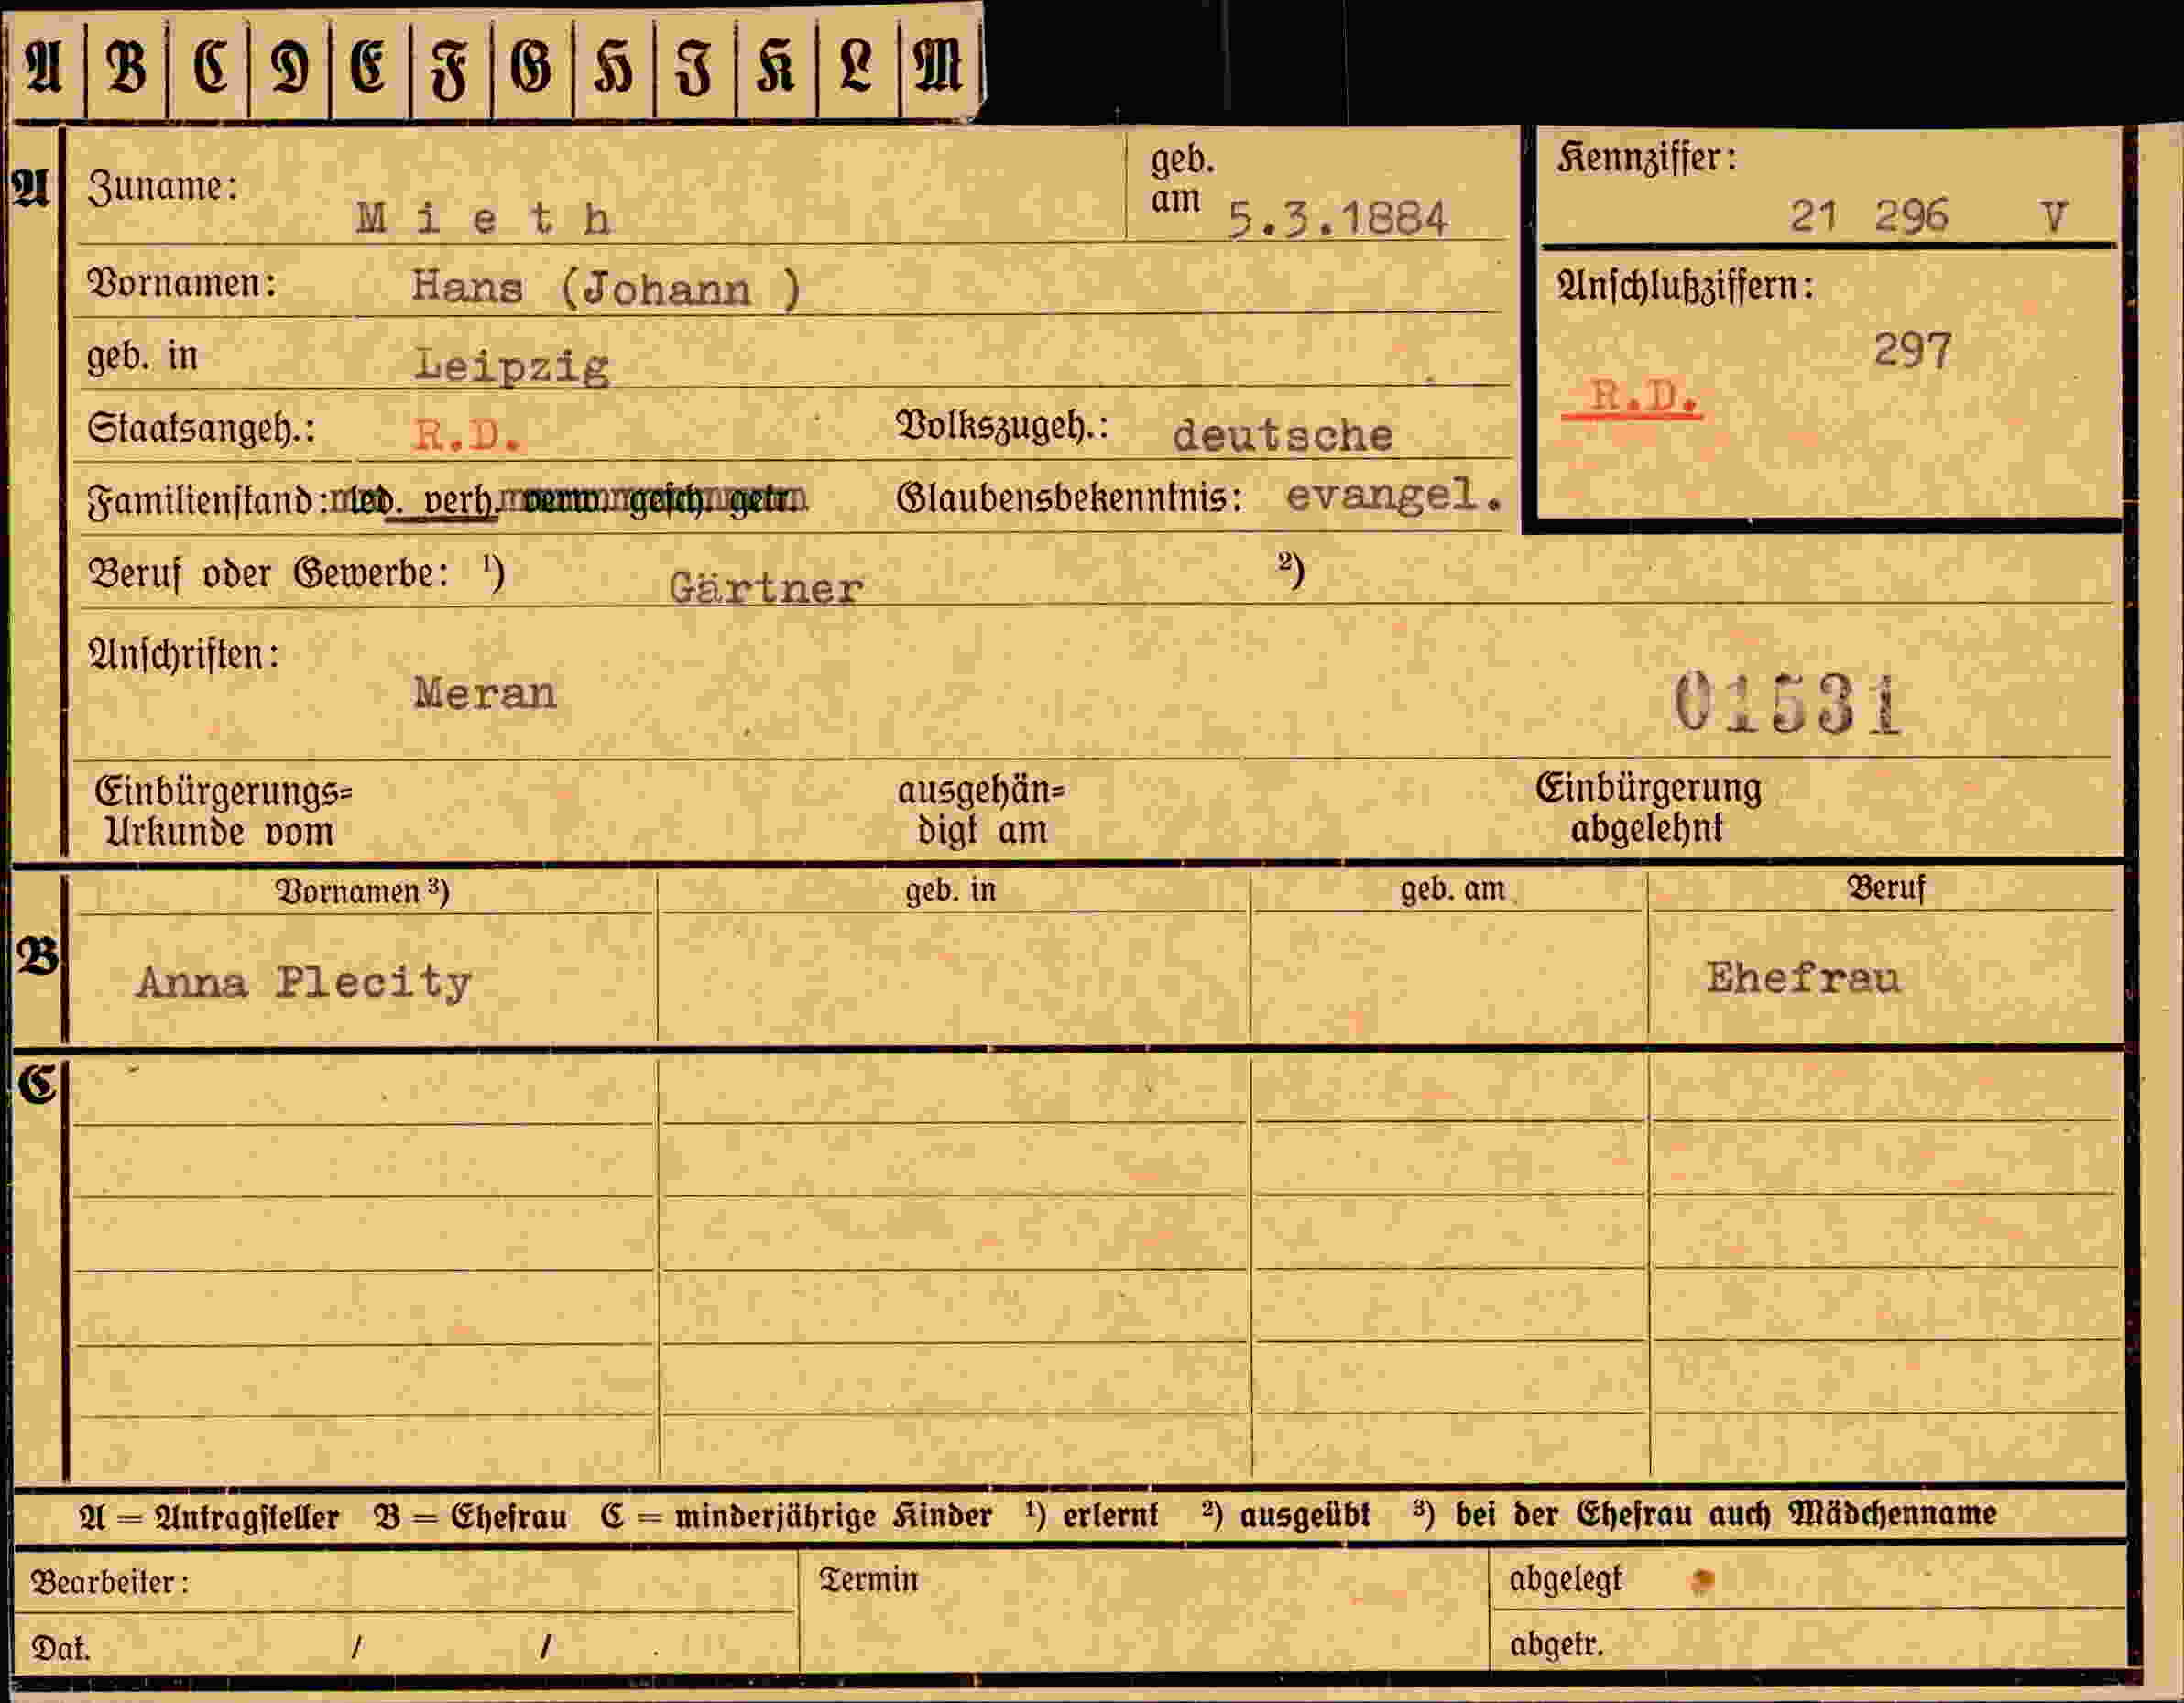 A B C D E F G H I K L M
A
Zuname: Mieth
geb. am 5.3.1884
Kennziffer: 21 296 V
Vornamen: Hans (Johann )
Anschlußziffern: 297
R.D.
geb. in Leipzig
Staatsangeh.: R.D. Volkszugeh.: deutsche
Familienstand: led. verh. verw. gesch. getr. Glaubensbekenntnis: evangel.
Beruf oder Gewerbe: ¹) Gärtner ²)
Anschriften:
Meran
01531
Einbürgerungs=
Urkunde vom
ausgehän=
digt am
Einbürgerung
abgelehnt
B
Vornamen ³) geb. in geb. am Beruf
Anna Plecity Ehefrau
C
A = Antragsteller B = Ehefrau C = minderjährige Kinder ¹) erlernt ²) ausgeübt ³) bei der Ehefrau auch Mädchenname
Bearbeiter: Termin abgelegt
Dat. / / abgetr.